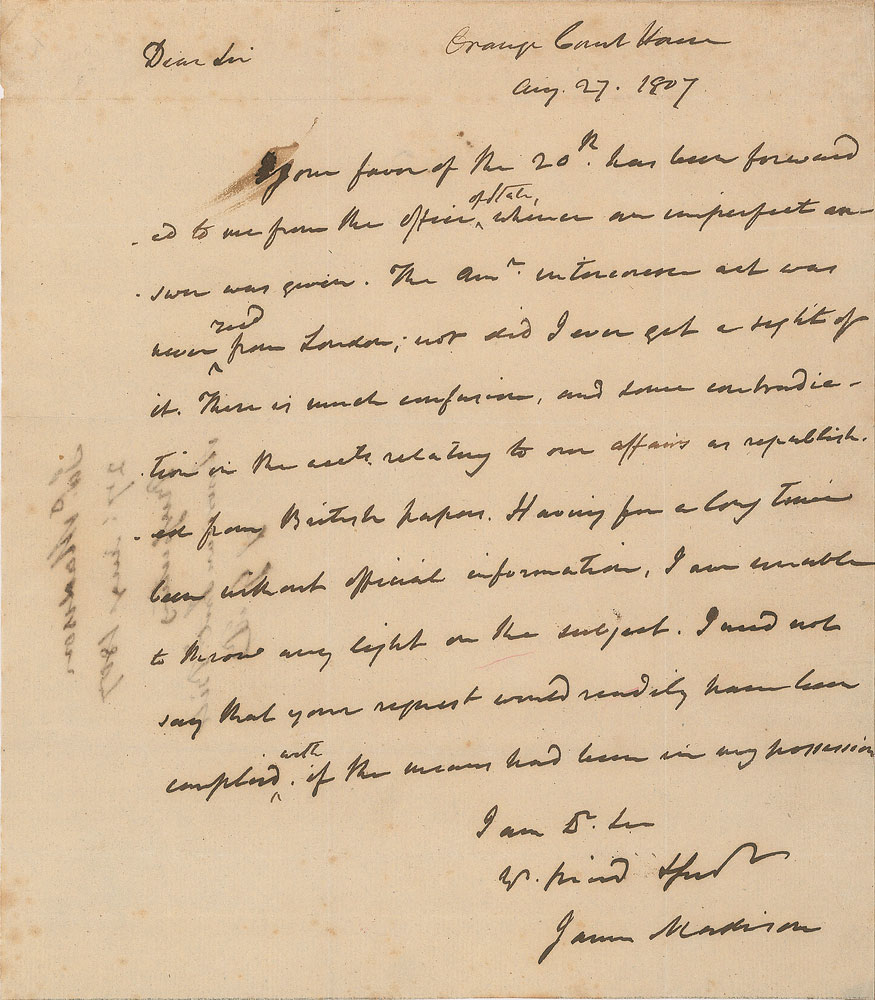 Orange Court House
Dear Sir
Aug. 27. 1807
Your favor of the 20th. has been forward
-ed to me from the office of State, whence an imperfect an-
-swer was given. The Amn. intercourse act was
never recd from London; nor did I ever get a sight of
it. There is much confusion, and some contradic-
-tion in the accts. relating to our affairs as republish-
-ed from British papers. Having for a long time
been without official information, I am unable
to throw any light on the subject. I need not
say that your request would readily have been
complied with. if the means had been in my possession
I am Dr. Sir
Yr. friend & Servt
James Madison
Jas. Madison
27th. Augt. 1807